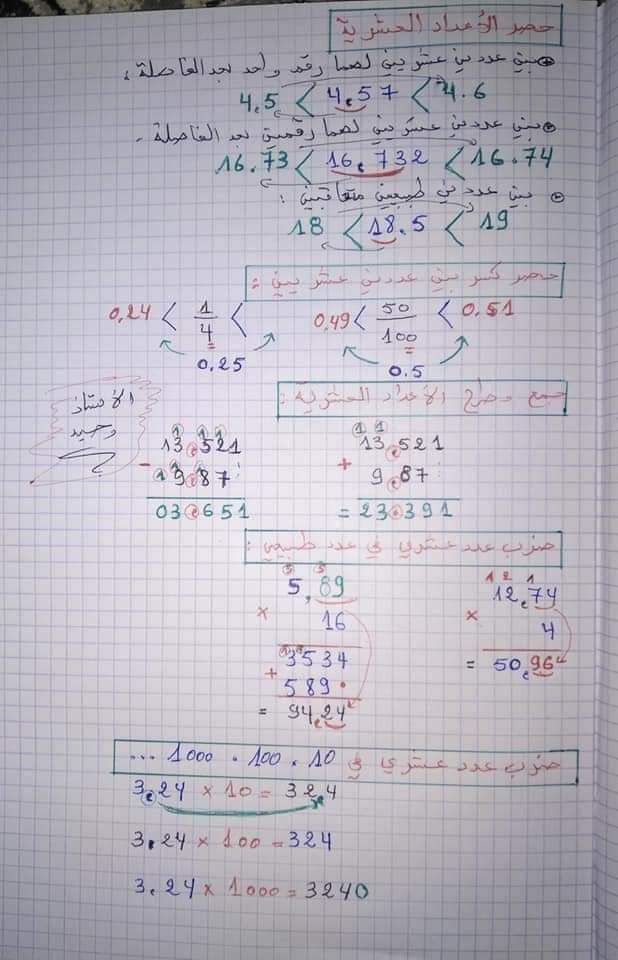 حصر الأعداد العشرية
بين عددين عشريين لهما رقم واحد بعد الفاصلة :
4.5 < 4.57 < 4.6
بين عددين عشريين لهما رقمين بعد الفاصلة -
16.73 < 16,732 < 16.74
بين عددين طبيعيين متعاقبين :
18 < 18.5 < 19
حصر كسر بين عددين عشريين :
0,24 < 1/4 <
0,49 < 50/100 < 0.51
0,25
0.5
جمع وطرح الأعداد العشرية :
الأستاذ
وحيد
13,521
- 19,87
03,651
13,521
+ 9,87
= 23,391
ضرب عدد عشري في عدد طبيعي :
5,89
× 16
3534
+ 589.
= 94,24
12,74
× 4
= 50,96
ضرب عدد عشري في 10 . 100 . 1000 ...
3,24 × 10 = 32,4
3.24 × 100 = 324
3.24 × 1000 = 3240